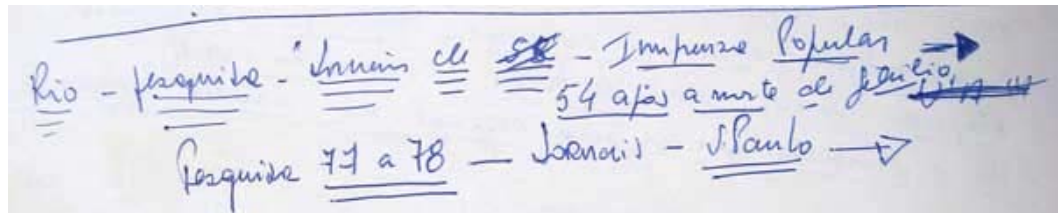 Rio - pesquisa - Jornais de - Imprensa Popular
54 após a morte de Getúlio,
Pesquisa 77 a 78 — Jornais - S. Paulo